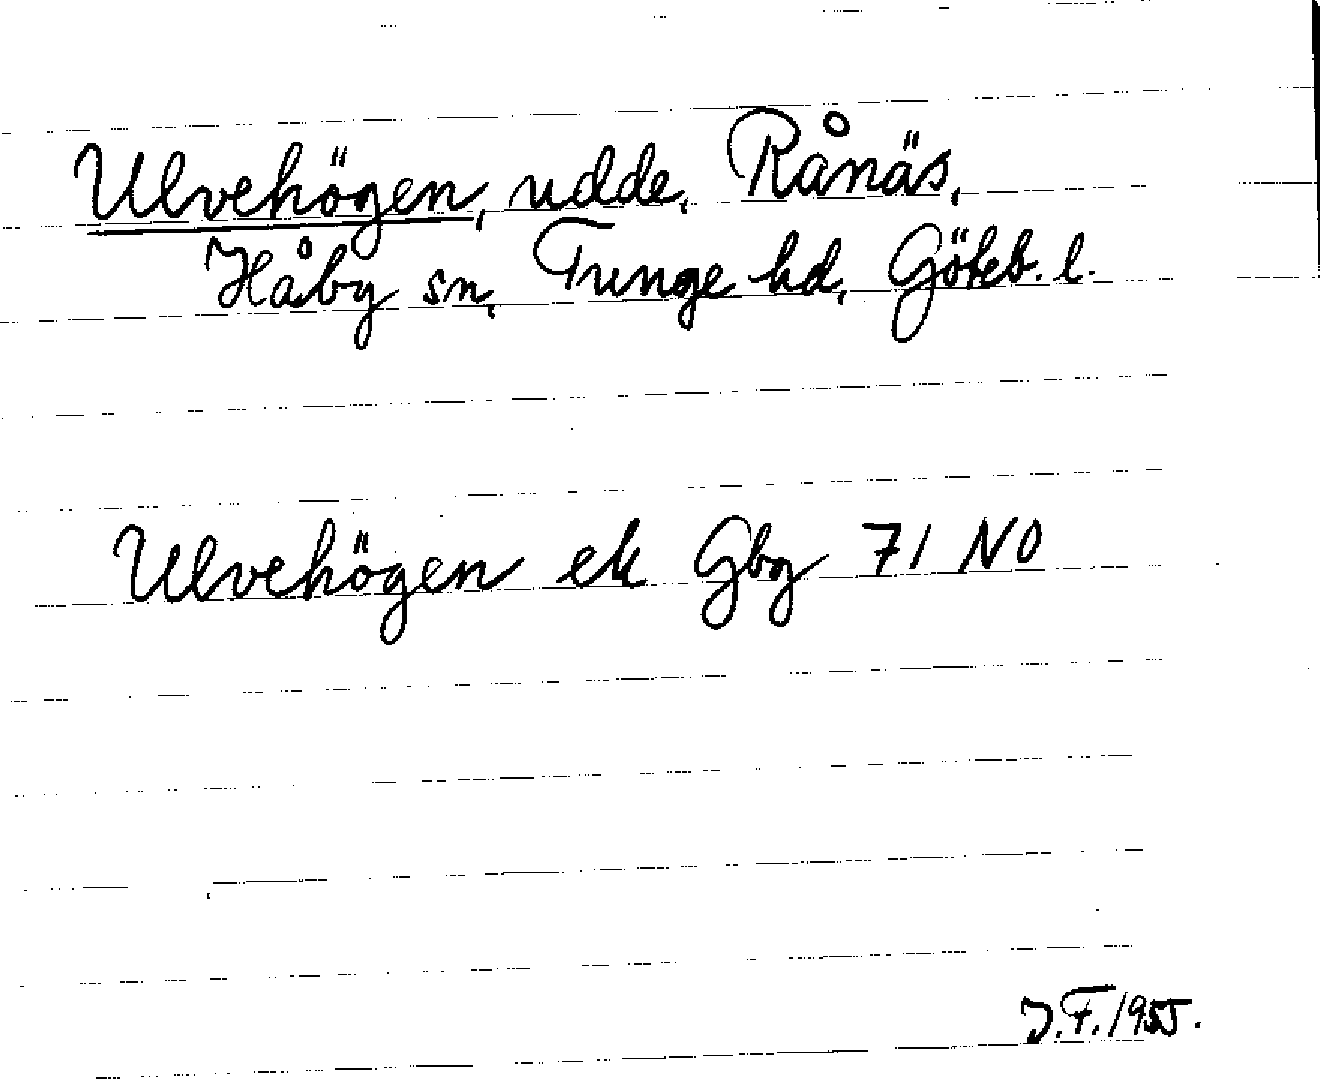 Ulvehögen, udde, Rånäs,
Håby sn, Tunge hd, Göteb. l.
Ulvehögen ek Gbg 71 NO
J.F. 1955.